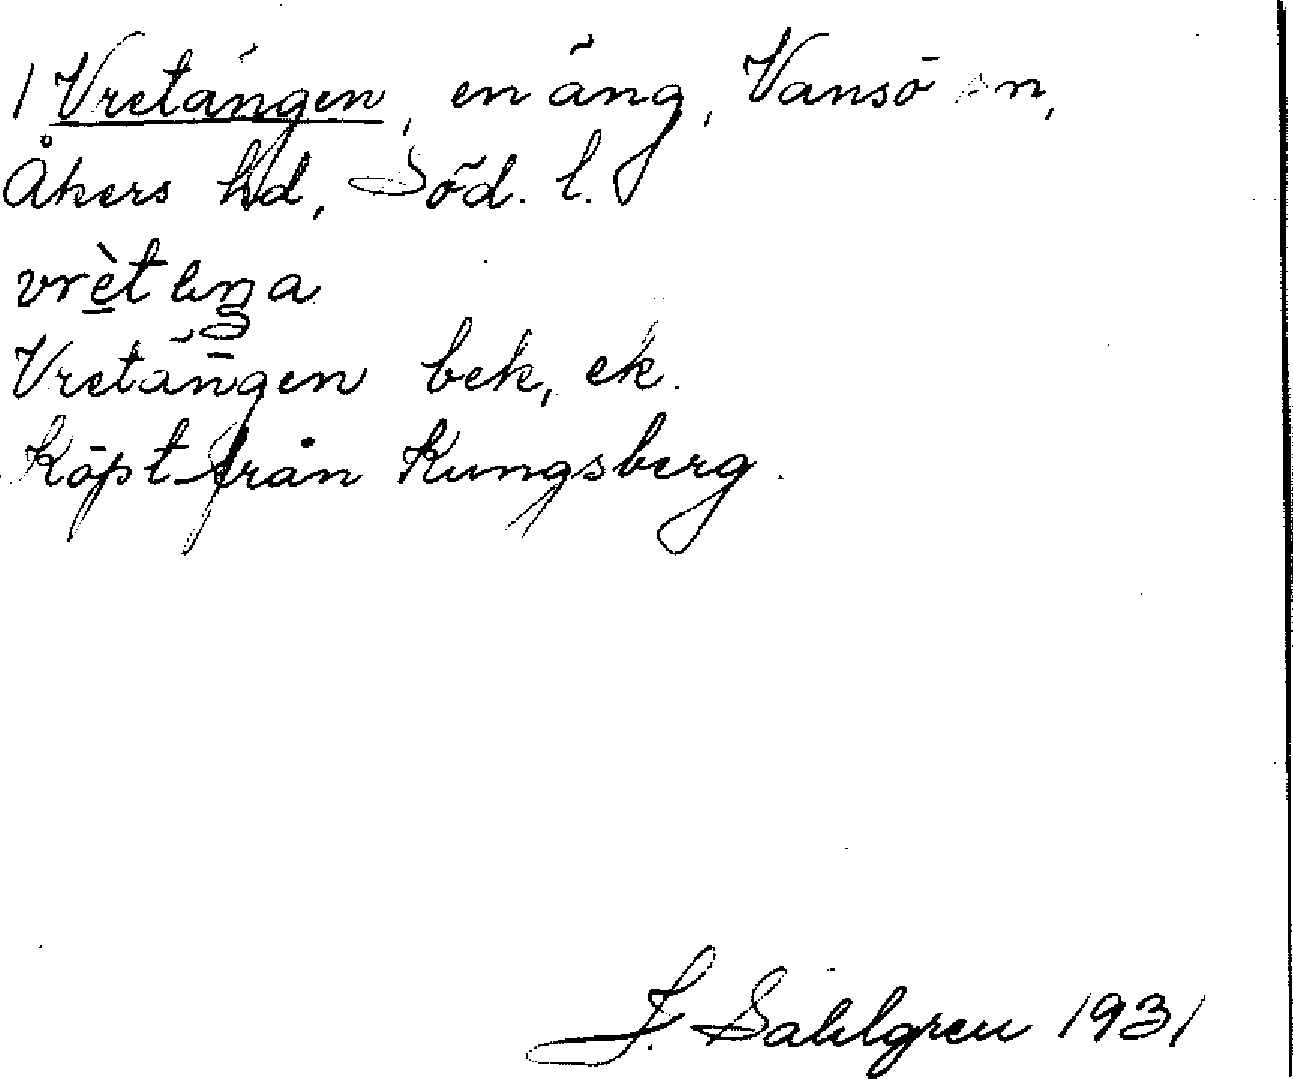 1 Vretängen, en äng, Vansö sn,
Åkers hd, Söd. l.
Vretängen bek, ek.
Köpt från Kungsberg.
J. Sahlgren 1931